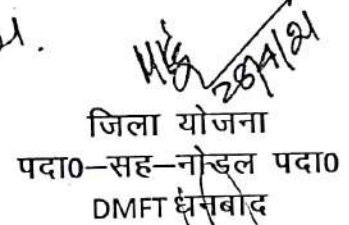 28/4/21
जिला योजना
पदा0-सह-नोडल पदा0
DMFT धनबाद